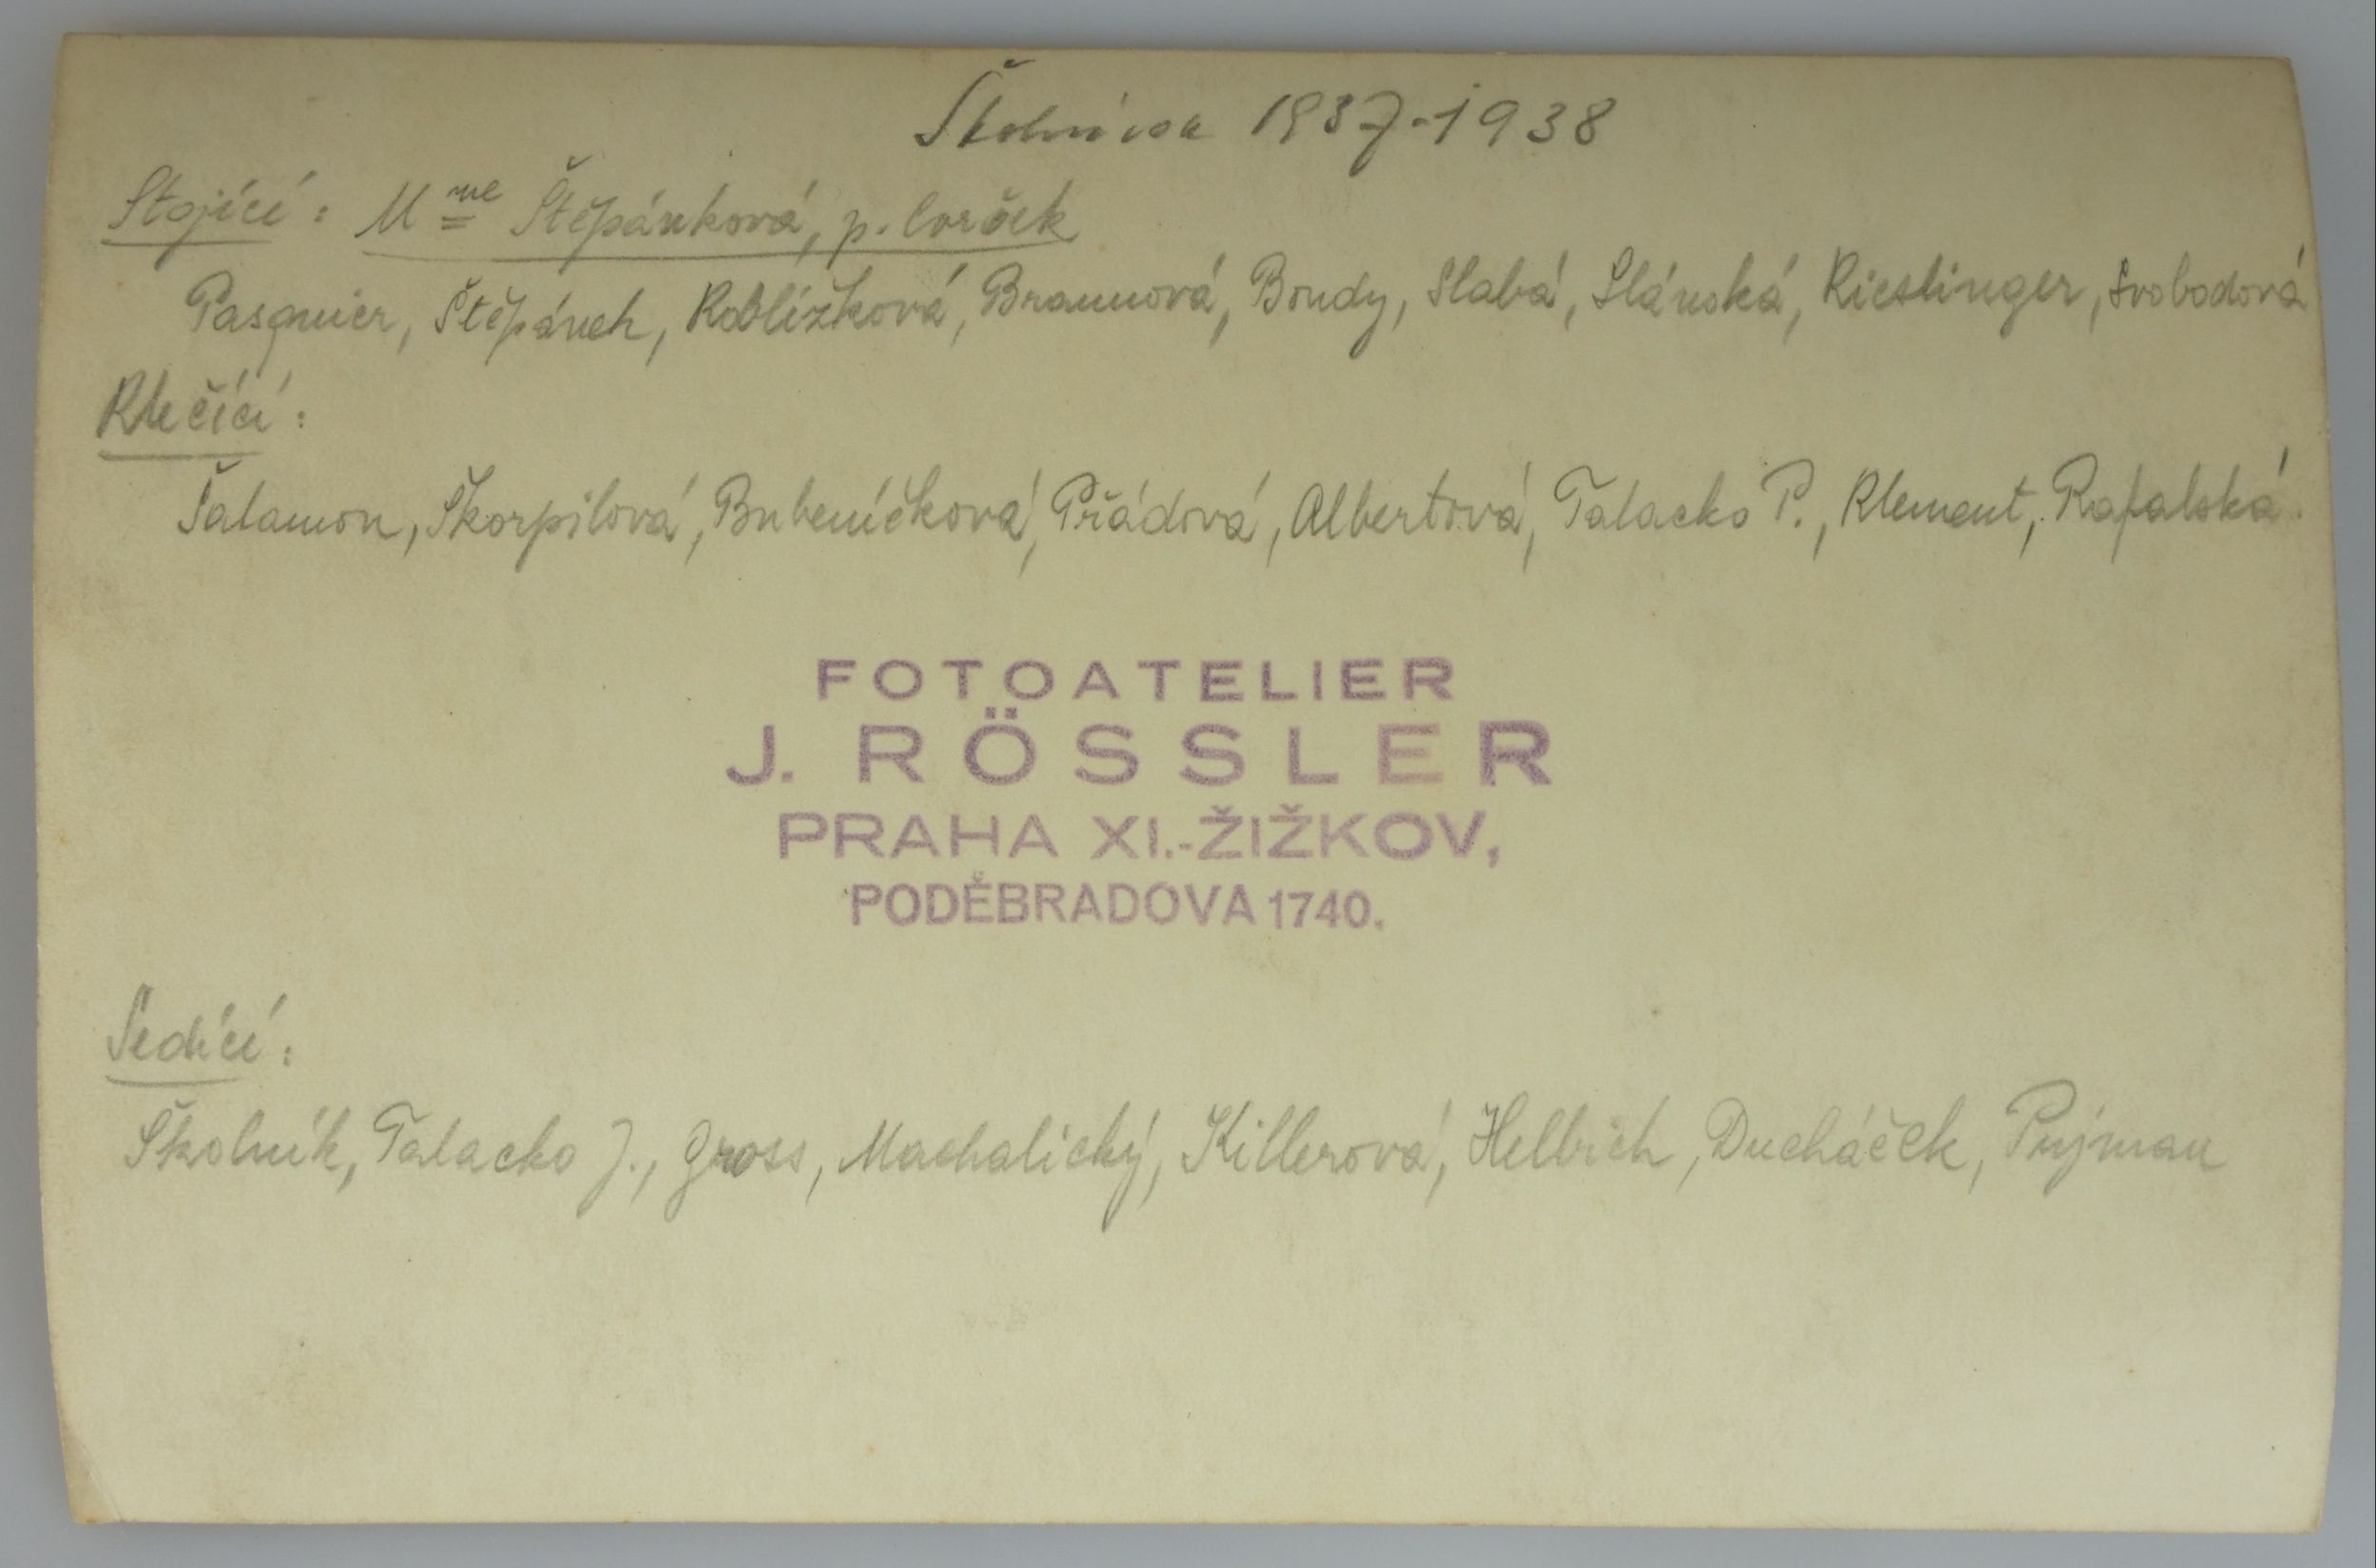 1937-1938
Stojící: Mme Štěpánková, p.
Pasquier, Štěpánek, Roblížková, Braunová, Bondy, Slabá, Slánská, Rieslinger, Svobodová
Klečící:
Šalamon, Škorpilová, Bubeníčková, Přádová, Albertová, Talacko P., Klement, Rafalská.
FOTOATELIER
J. RÖSSLER
PRAHA XI.-ŽIŽKOV,
PODĚBRADOVA 1740.
Sedící:
Školník, Talacko J., Gross, Machalický, Killerová, Hellrich, Ducháček, Pujman